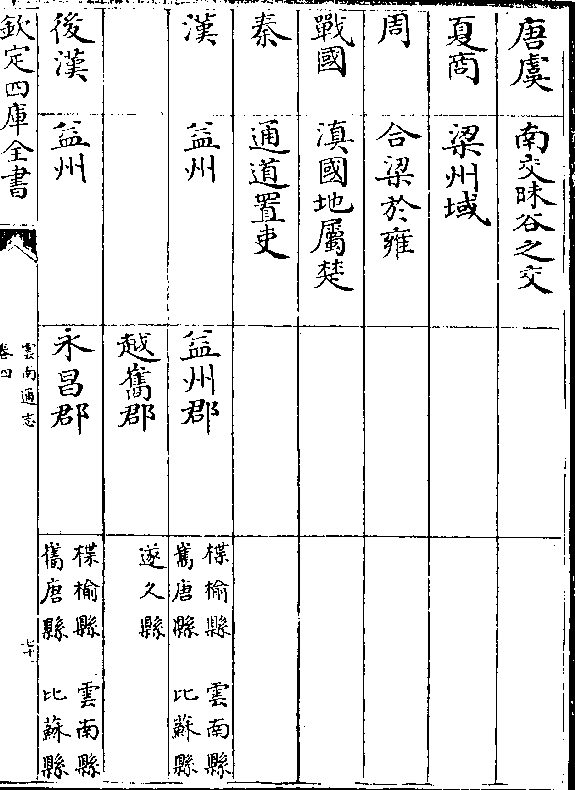 唐虞 南交昧谷之交
夏商 梁州域
周 合梁於雍
戰國 滇國地屬楚
秦 通道置吏
漢 益州 益州郡 楪榆縣 雲南縣
嶲唐縣 比蘇縣
越嶲郡 遂久縣
後漢 益州 永昌郡 楪榆縣 雲南縣
嶲唐縣 比蘇縣
欽定四庫全書
雲南通志
卷四